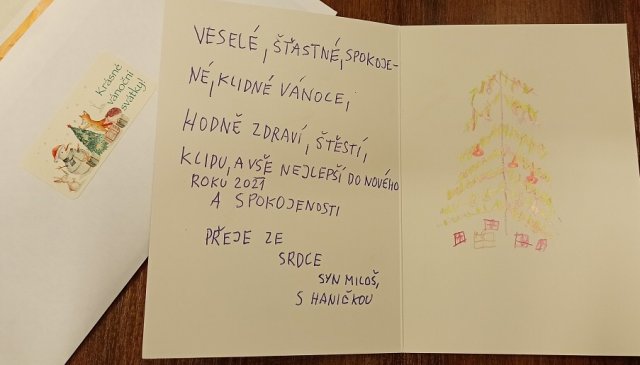 Krásné
vánoční
svátky!
VESELÉ, ŠŤASTNÉ, SPOKOJE-
NÉ, KLIDNÉ VÁNOCE,
HODNĚ ZDRAVÍ, ŠTĚSTÍ,
KLIDU, A VŠE NEJLEPŠÍ DO NOVÉHO
ROKU 2021
A SPOKOJENOSTI
PŘEJE ZE
SRDCE
SYN MILOŠ,
S HANIČKOU